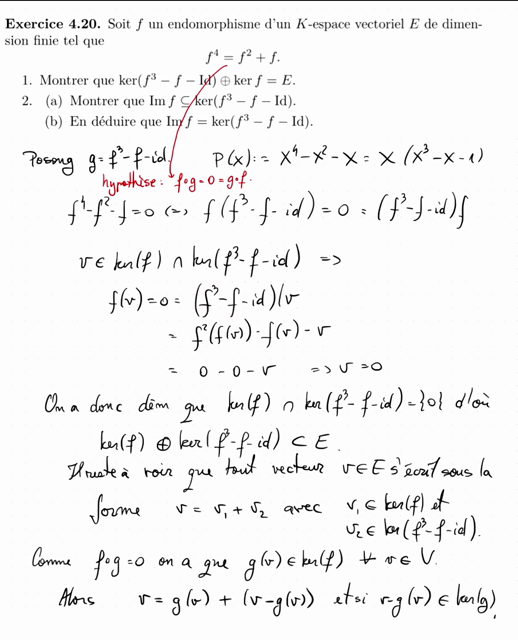 Exercice 4.20. Soit f un endomorphisme d'un K-espace vectoriel E de dimen-
sion finie tel que
f⁴ = f² + f.
1. Montrer que ker(f³ − f − Id) ⊕ ker f = E.
2. (a) Montrer que Im f ⊆ ker(f³ − f − Id).
(b) En déduire que Im f = ker(f³ − f − Id).
Posons g = f³ - f - id. P(X) := X⁴ - X² - X = X (X³ - X - 1)
hypothèse : f∘g = 0 = g∘f.
f⁴ - f² - f = 0 (=) f (f³ - f - id) = 0 = (f³ - f - id) f
v ∈ ker(f) ∩ ker(f³ - f - id) =>
f(v) = 0 = (f³ - f - id)(v
= f²(f(v)) - f(v) - v
= 0 - 0 - v => v = 0
On a donc dém que ker(f) ∩ ker(f³ - f - id) = {0} d'où
ker(f) ⊕ ker(f³ - f - id) ⊂ E.
Il reste à voir que tout vecteur v ∈ E s'écrit sous la
forme v = v₁ + v₂ avec v₁ ∈ ker(f) et
v₂ ∈ ker(f³ - f - id).
Comme f∘g = 0 on a que g(v) ∈ ker(f) ∀ v ∈ V.
Alors v = g(v) + (v - g(v)) et si v - g(v) ∈ ker(g),